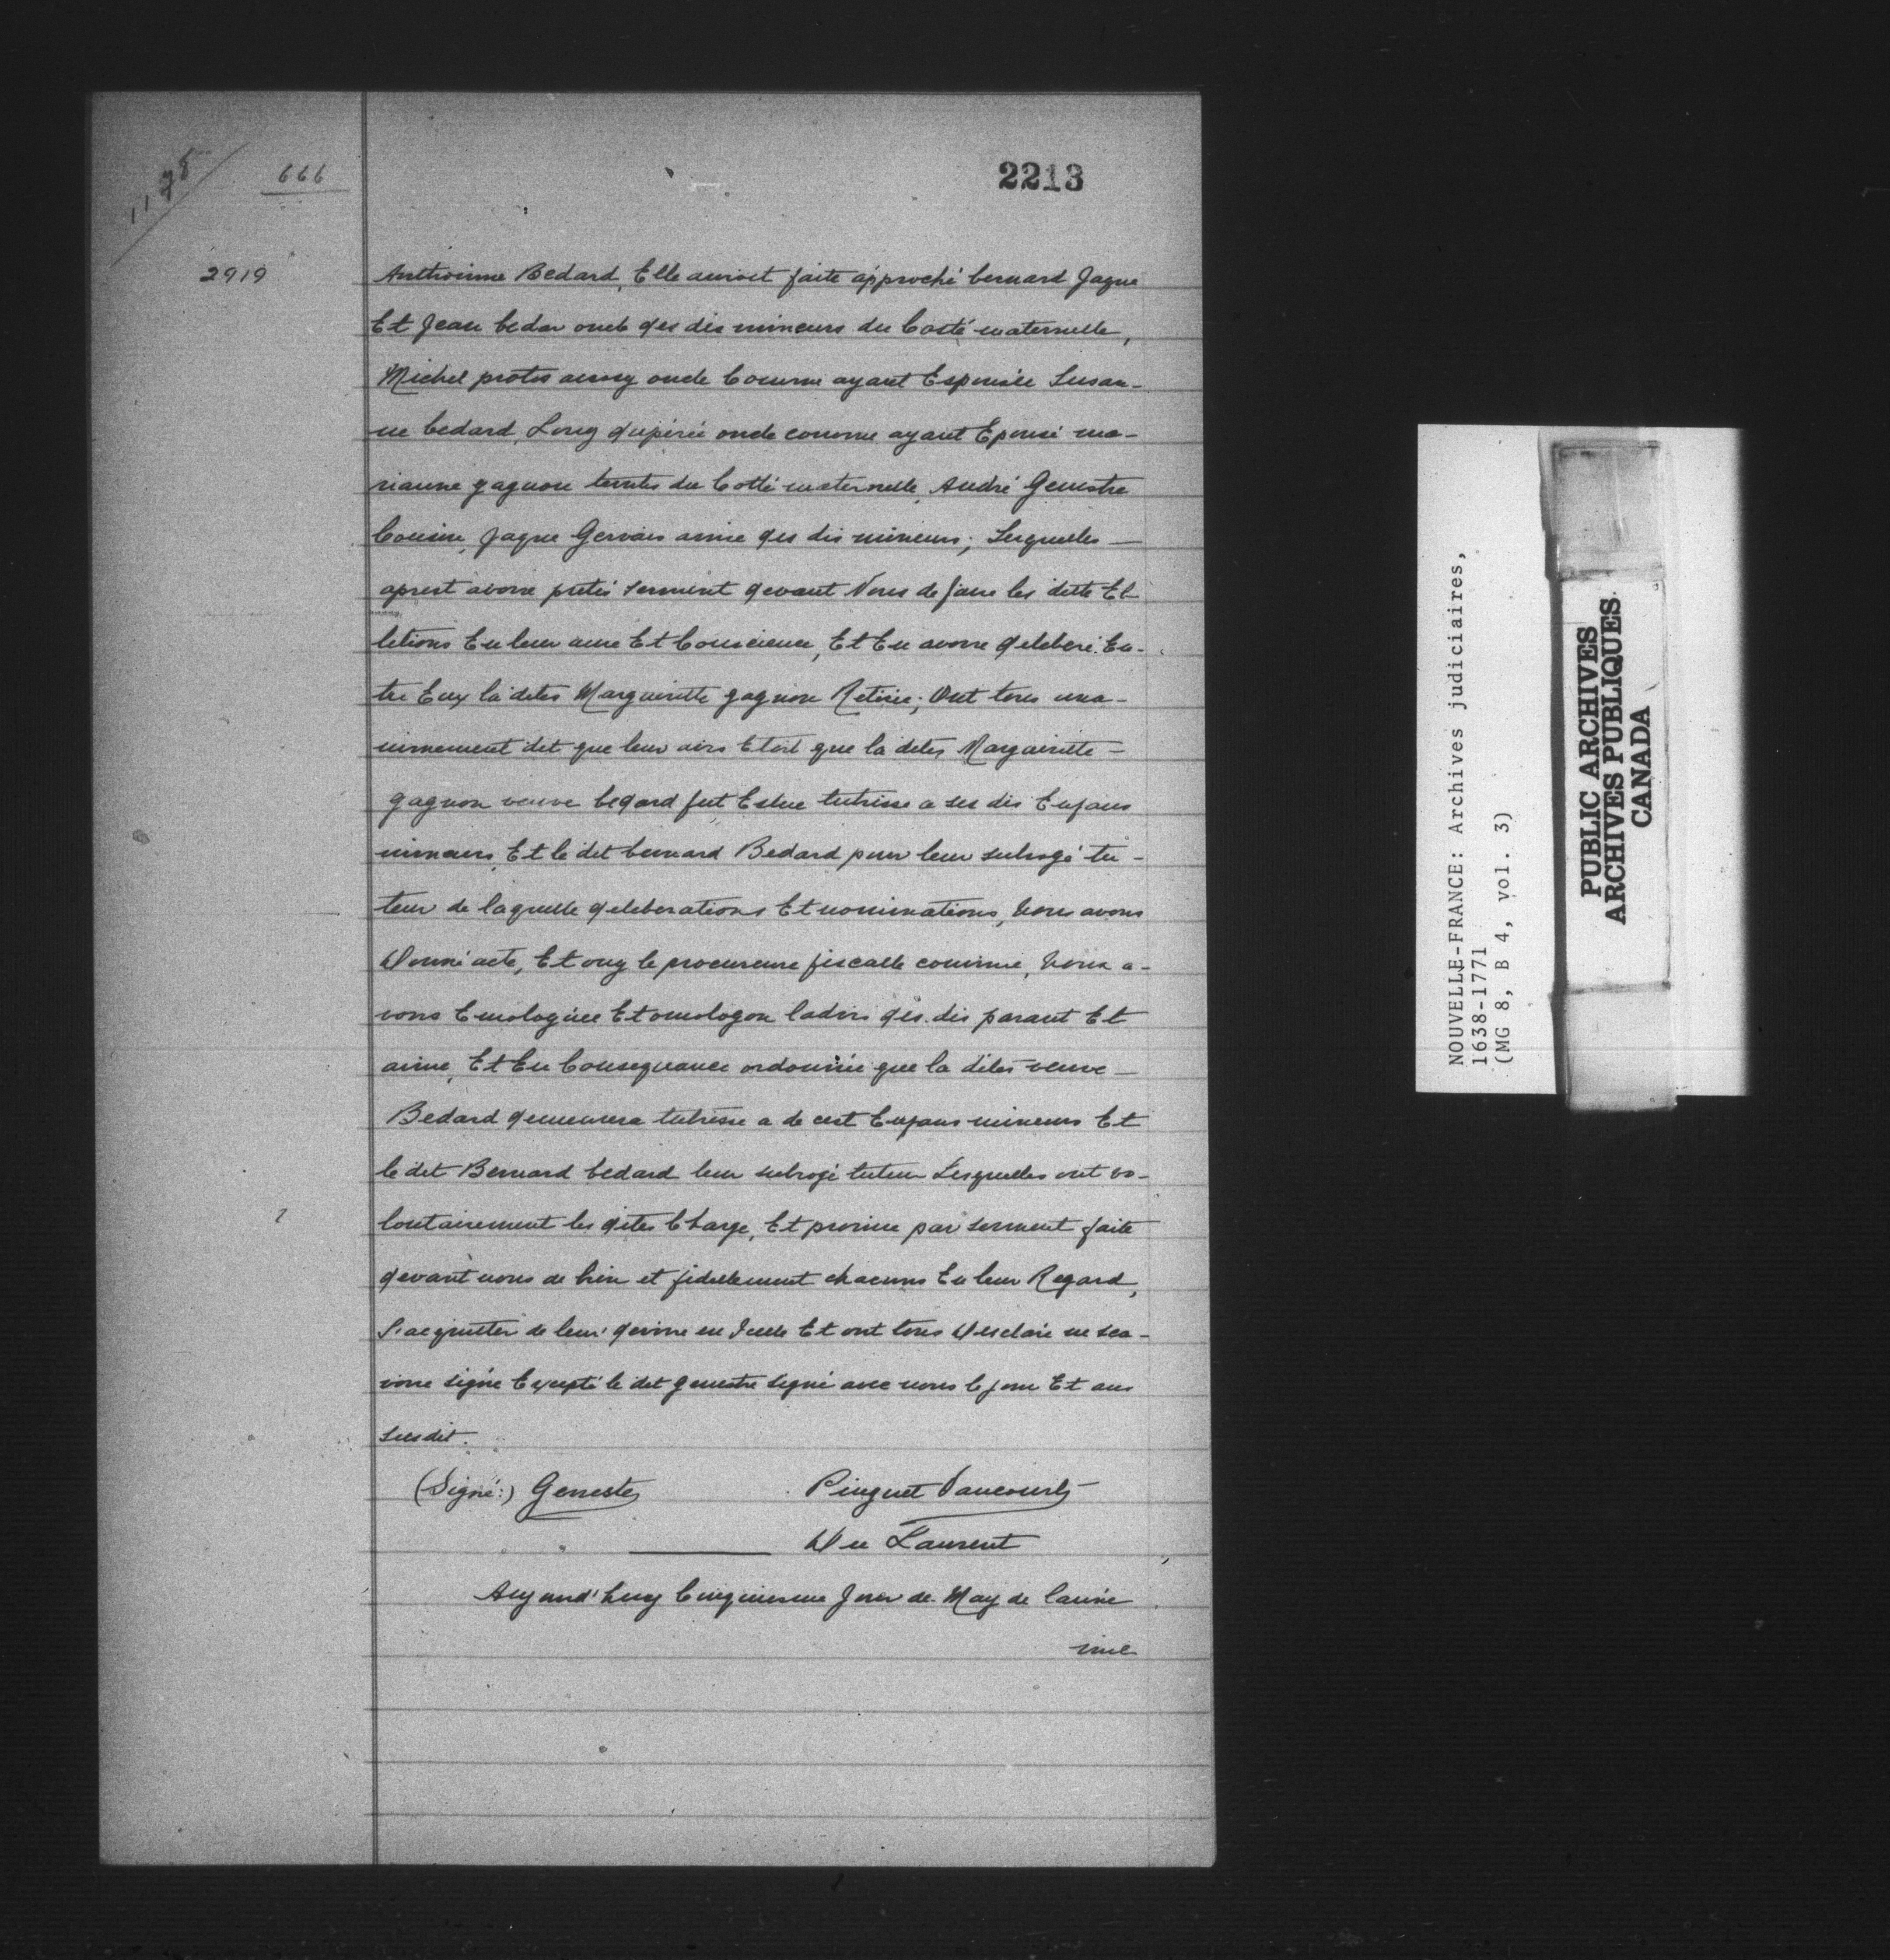 1178
666
2213
2919
Anthoinne Bedard, Elle auroit faite approché bernard Jaque
Et Jean bedar oncle des dis mineurs du Costé maternelle,
Michel protos aussy oncle Comme ayant Espousée Susan-
ne bedard, Louy dupéré oncle comme ayant Epousé ma-
rianne gagnon du Cotté maternelle, André Genestre
Cousin, Jaque Gervais amie des dis mineurs; Lesquelles —
aprest avoire pretés serment devant Nous de faire les ditte El-
letions En leur ame Et Conscience, Et En avoire deleberé. En-
tre Eux la dites Margueritte gagnon Retirée; Ont tous una-
nimement dit que leur avis Etoit que la dites Margueritte —
gagnon veuve bedard fut Eslue tutrisse a ses dis Enfans
mineurs, Et le dit bernard Bedard pour leur subrogé tu-
teur de laquelle deleberations Et nominations, Nous avons
Donné acte, Et ouy le procureure fiscalle comme, Nous a-
vons Emologuée Et omologon ladvis des dis parant Et
amie, Et En Consequance ordonnée que la dites veuve —
Bedard demeurera tutrisse a de cest Enfans mineurs Et
le dit Bernard bedard leur subrogé tuteur Lesquelles ont vo-
lontairement les dites Charge, Et promie par serment faite
devant nous de bien et fidellement chacuns En leur Regard,
S'acquitter de leur devoire en Icelle Et ont tous Desclaré ne sca-
voire signé Excepté le dit genestre signé avec nous le jour Et ans
susdit.
(Signé:) Genestes Pinguet Vaucourt
Du Laurent
Aujourd'huy Cinquiesme Jour de May de lanné
mil
NOUVELLE-FRANCE: Archives judiciaires,
1638-1771
(MG 8, B 4, vol. 3)
PUBLIC ARCHIVES
ARCHIVES PUBLIQUES
CANADA